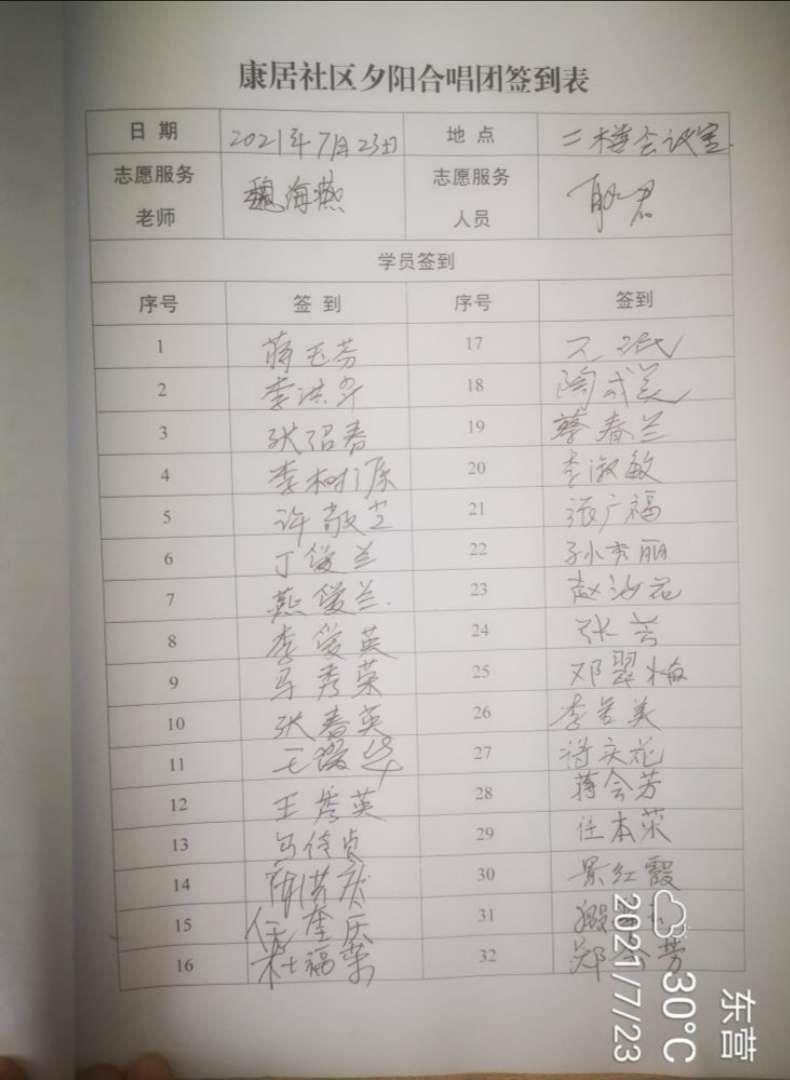 康居社区夕阳合唱团签到表
日期 2021年7月23日 地点 二楼会议室
志愿服务老师 魏海燕 志愿服务人员 耿君
学员签到
序号 签到 序号 签到
1 蒋玉芬 17
2 李洪升 18 陶成美
3 张绍春 19 蔡春兰
4 李树源 20 李淑敏
5 许敬芝 21 张广福
6 丁俊兰 22 孙秀丽
7 燕俊兰 23 赵
8 李俊英 24 张芳
9 马秀荣 25 邓翠梅
10 张春英 26 李美
11 王 27 花
12 王秀英 28 蒋会芳
13 马传贞 29 任本荣
14 洪庆 30 景红霞
15 任奎庆 31
16 杜福荣 32 郑会芳
东营
30°C
2021/7/23